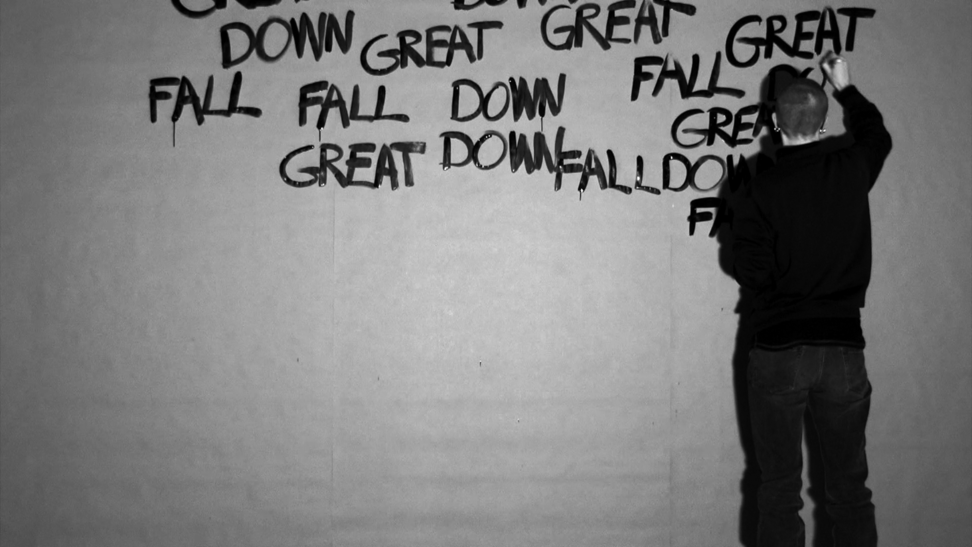 GREAT DOWN
DOWN GREAT GREAT GREAT
FALL FALL DOWN FALL
GREAT DOWN FALL DOW